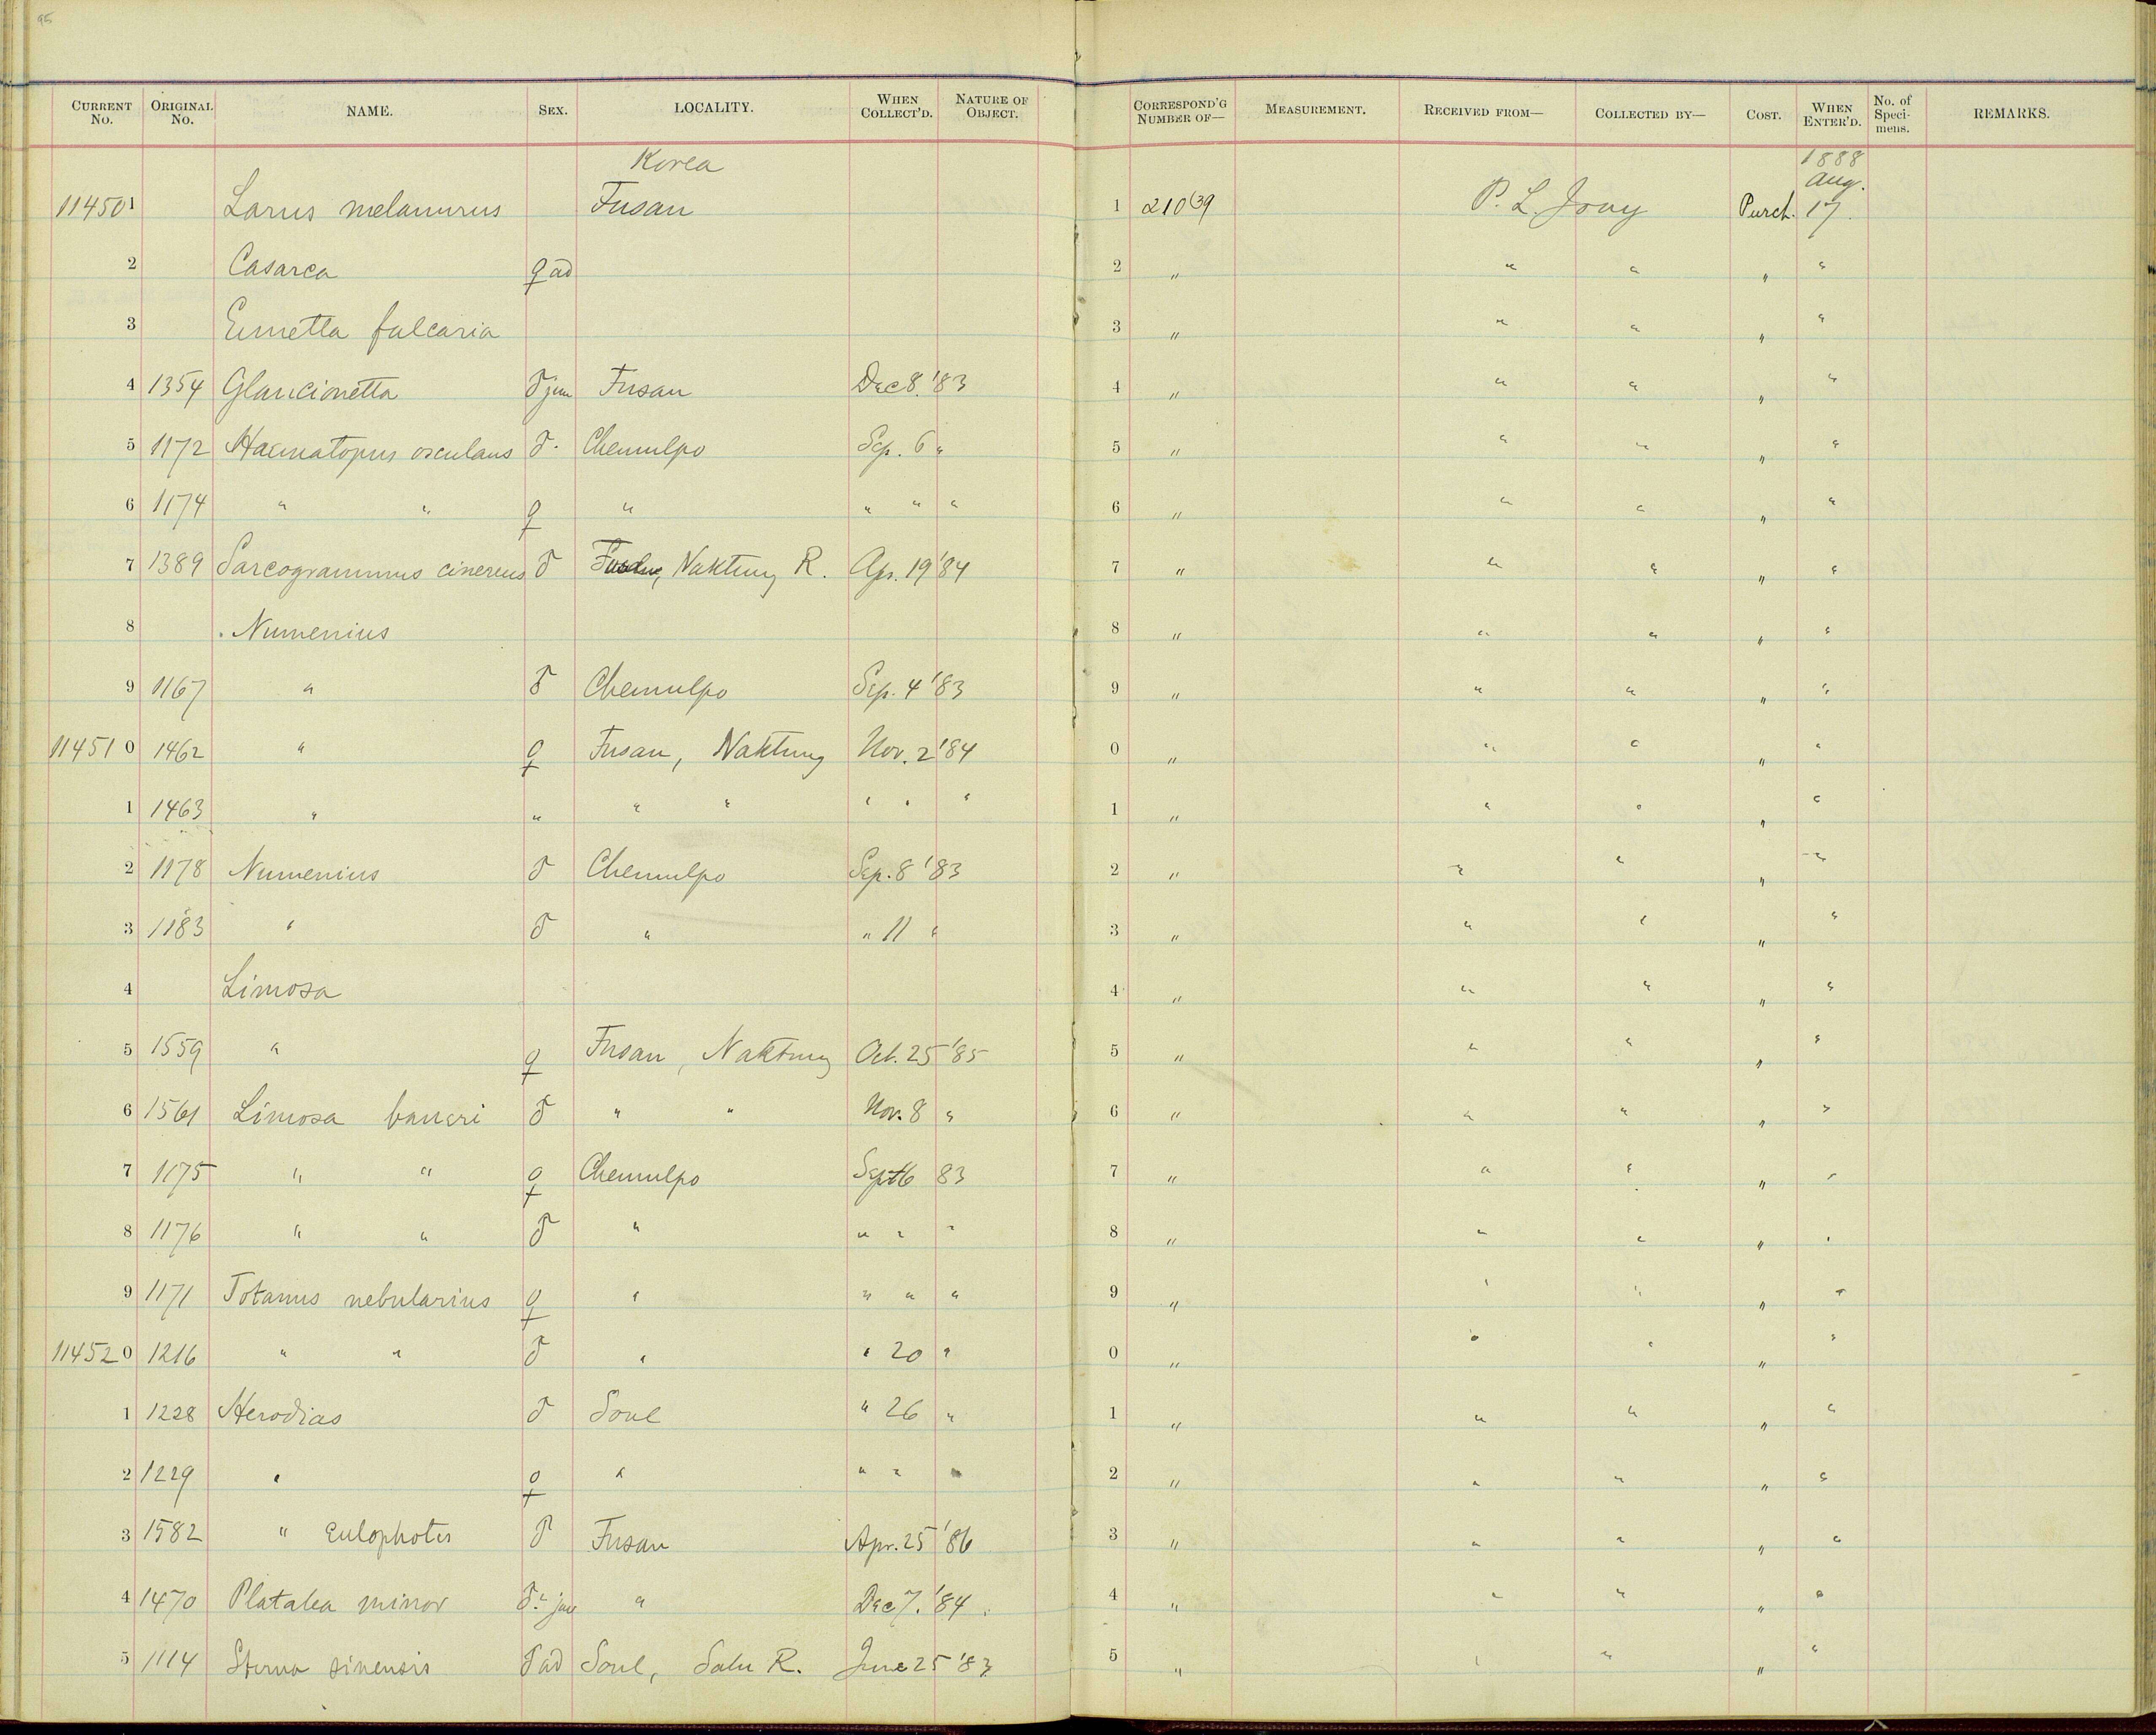 95
CURRENT No. ORIGINAL No. NAME. SEX. LOCALITY. WHEN COLLECT'D. NATURE OF OBJECT. CORRESPOND'G NUMBER OF— MEASUREMENT. RECEIVED FROM— COLLECTED BY— COST. WHEN ENTER'D. No. of Speci-mens. REMARKS.
Korea 1888
Aug.
114501 Larus melanurus Fusan 1 210(39 P. L. Jouy Purch. 17
2 Casarca ♀ ad 2 " " " " "
3 Eunetta falcaria 3 " " " " "
4 1354 Glaucionetta ♂ juv Fusan Dec 8. '83 4 " " " " "
5 1172 Haematopus osculans ♂. Chemulpo Sep. 6 " 5 " " " " "
6 1174 " " ♀ " " " " 6 " " " " "
7 1389 Sarcogrammus cinereus ♂ Naktung R. Apr. 19 '84 7 " " " " "
8 Numenius 8 " " " " "
9 1167 " ♂ Chemulpo Sep. 4 '83 9 " " " " "
11451 0 1462 " ♀ Fusan, Naktung Nov. 2 '84 0 " " " " "
1 1463 " " " " " " " 1 " " " " "
2 1178 Numenius ♂ Chemulpo Sep. 8 '83 2 " " " " "
3 1183 " ♂ " " 11 " 3 " " " " "
4 Limosa 4 " " " " "
5 1559 " ♀ Fusan, Naktung Oct. 25 '85 5 " " " " "
6 1561 Limosa baueri ♂ " " Nov. 8 " 6 " " " " "
7 1175 " " ♀ Chemulpo Sept 6 83 7 " " " " "
8 1176 " " ♂ " " " " 8 " " " " "
9 1171 Totanus nebularius ♀ " " " " 9 " " " " "
11452 0 1216 " " ♂ " " 20 " 0 " " " " "
1 1228 Herodias ♂ Soul " 26 " 1 " " " " "
2 1229 " ♀ " " " " 2 " " " " "
3 1582 " eulophotes ♂ Fusan Apr. 25 '86 3 " " " " "
4 1470 Platalea minor ♂ juv " Dec 7. '84. 4 " " " " "
5 1114 Sterna sinensis ♂ ad Soul, R. June 25 '83 5 " " " " "